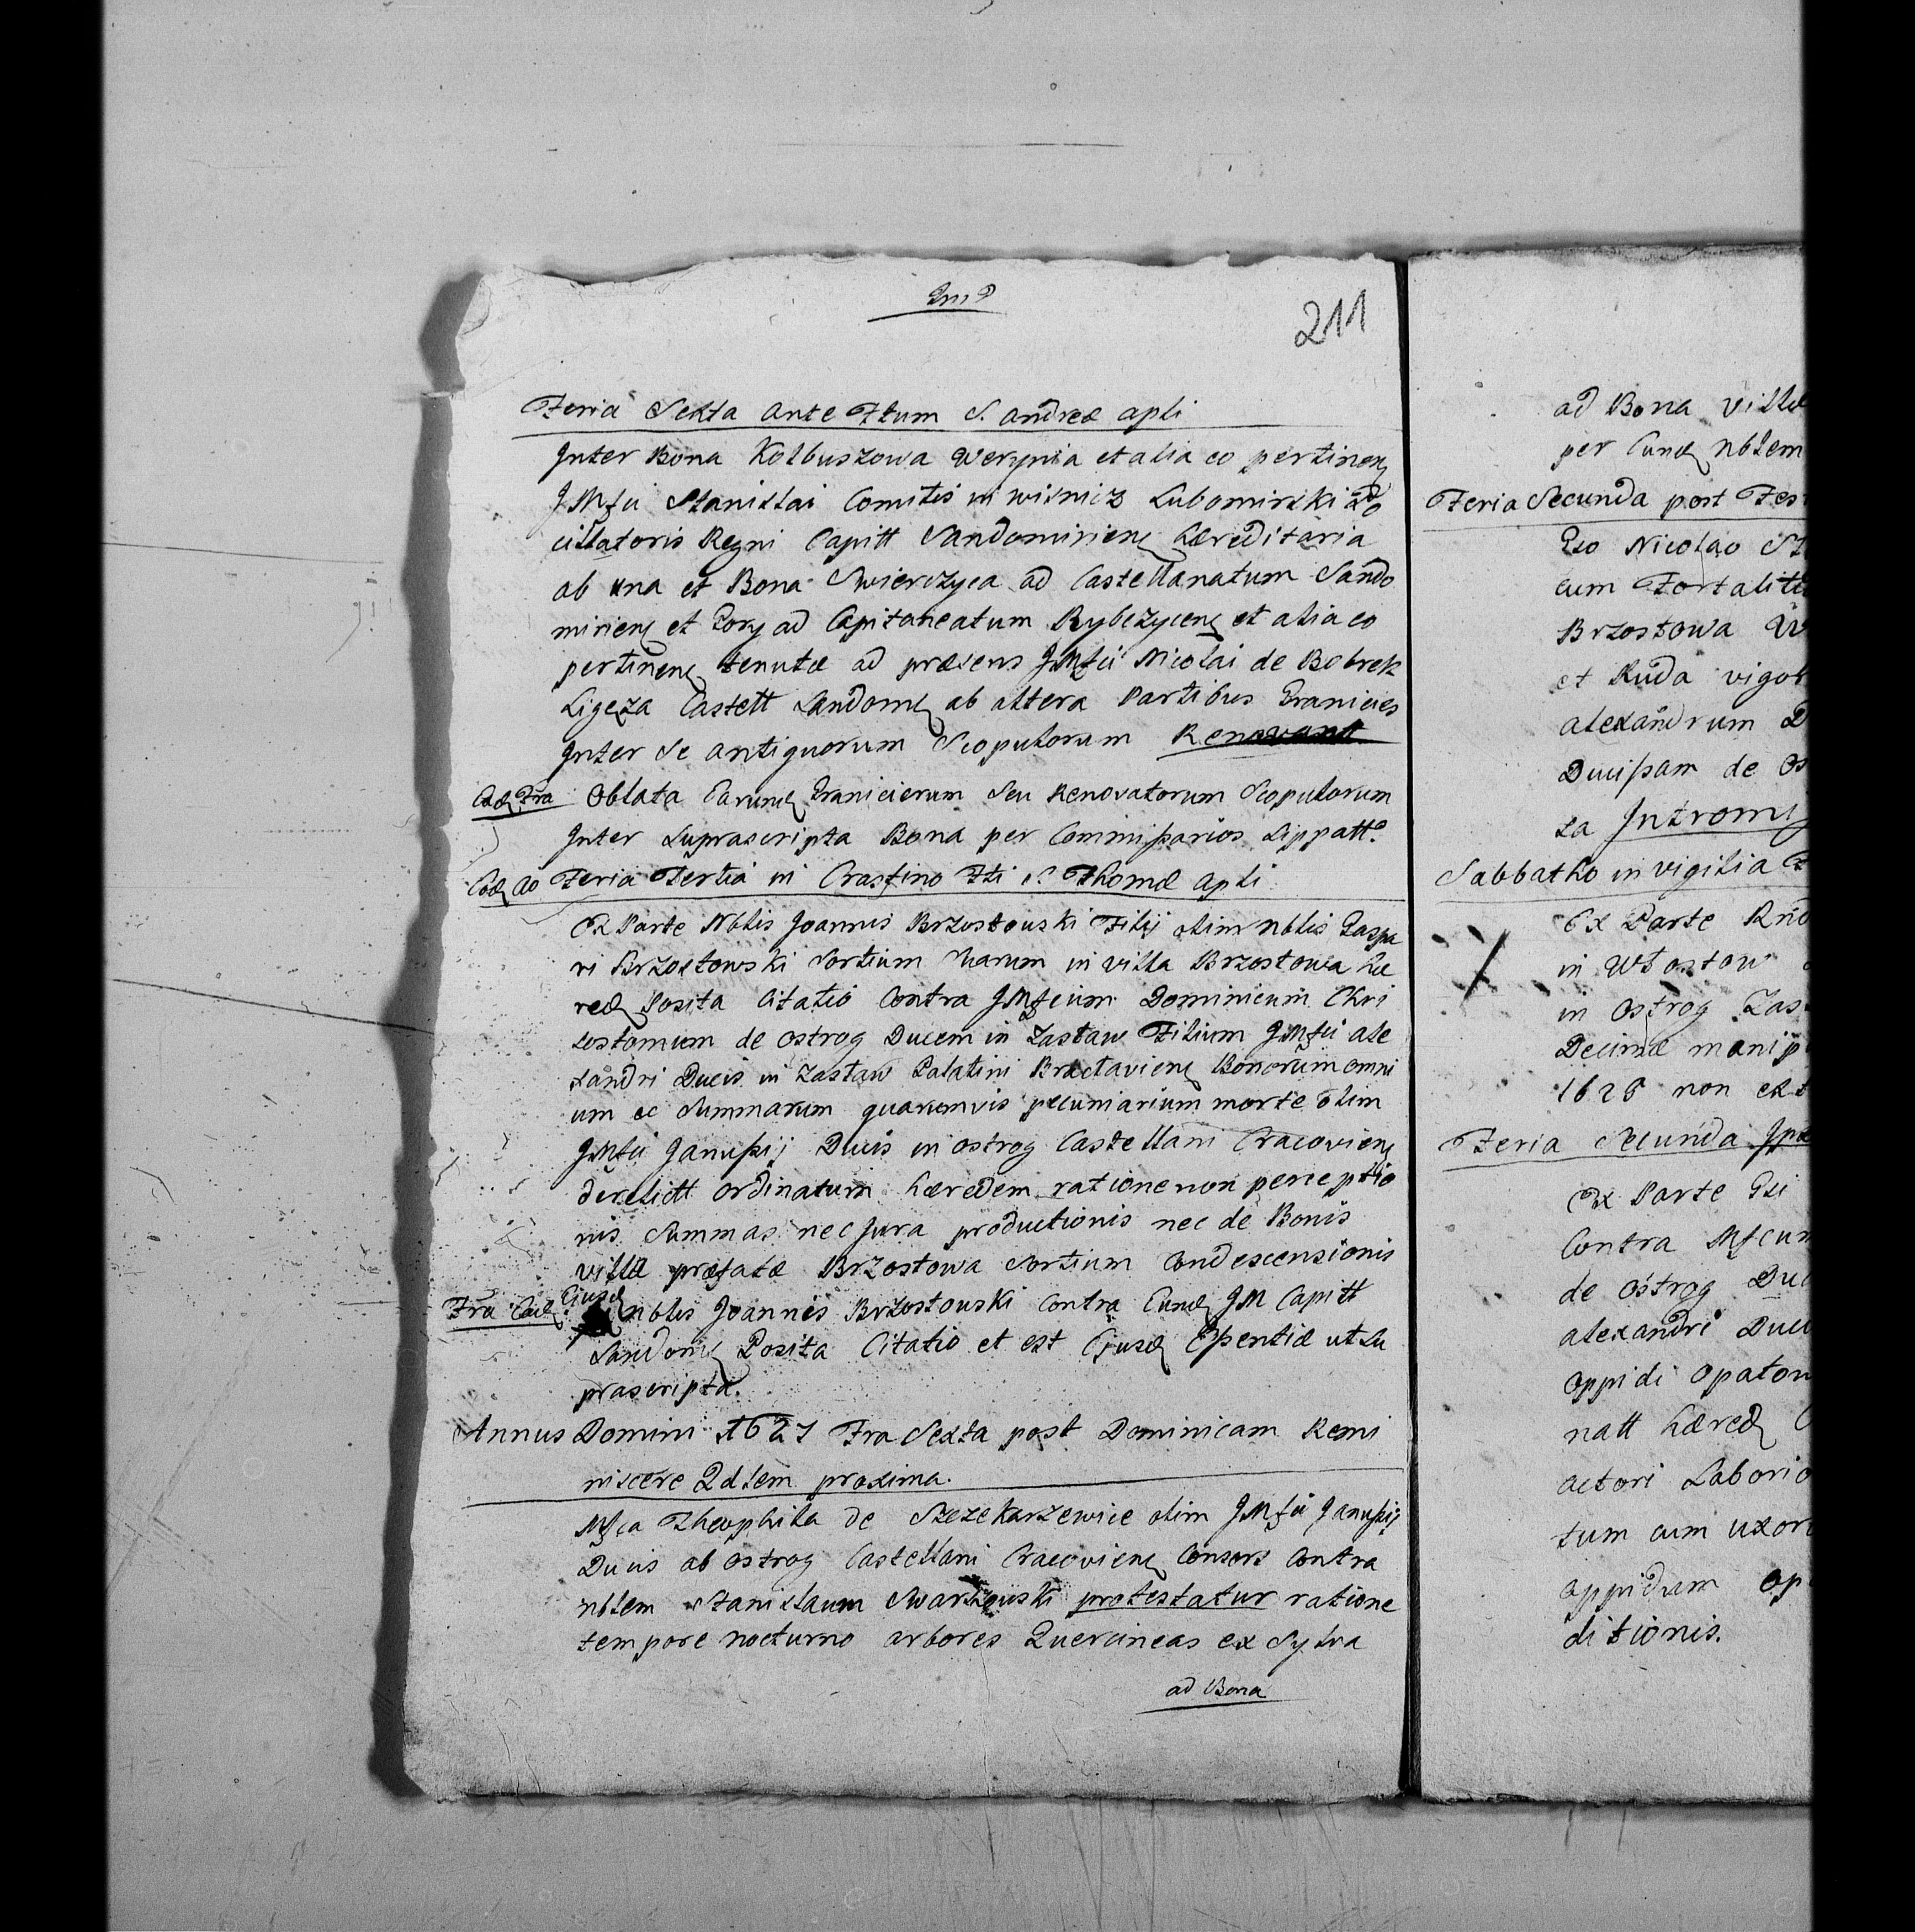 211
Feria Sexta ante Ftum S. Andreæ apli
Inter Bona Kolbuszowa Werynia et alia eo pertinen
JMfii Stanislai Comitis in Wisnicz Lubomirski Po
cillatoris Regni Capitt Sandomirien hæreditaria
ab una et Bona Swierczyca ad Castellanatum Sando
mirien et Pory ad Capitaneatum Rybczycen et alia eo
pertinen tenutæ ad præsens JMfii Nicolai de Bobrek
Ligęza Castell Sandom ab altera Partibus Granicies
Inter se antiquorum Scopulorum Renovant
Ead Fra Oblata Earund Granicierum seu Renovatorum Scopulorum
Inter Suprascripta Bona per Commissarios Sippatto
Eod Ao Feria Tertia in Crastino Fti S. Thomæ Apli
Ex Parte Nblis Joannis Brzostouski Filij olim Nblis Gaspa
ri Brzostowski Sortium suarum in villa Brzostowa hæ
red Posita Citatio Contra JMfcum Dominicum Chri
sostomum de Ostrog Ducem in Zastaw Filium JMfii Ale
xandri Ducis in Zastaw Palatini Bractavien Bonorum omni
um ac Summarum quarumvis pecuniarium morte olim
JMfii Janussij Ducis in Ostrog Castellani Cracovien
derelict ordinatum hæredem ratione non perceptio
nis Summas nec Jura productionis nec de Bonis
villæ præfatæ Brzostowa Sortium Condescensionis
Fra Ead Ejusd nblis Joannes Brzostouski Contra Eund JM Capitt
Sandom Posita Citatio et est Ejusd Essentiæ ut su
prascripta.
Annus Domini 1627 Fra Sexta post Dominicam Remi
niscere Qdlem proxima.
Mfca Theophila de Szczekarzewice olim JMfii Janussij
Ducis ab Ostrog Castellani Cracovien Consors Contra
nblem Stanislaum Swarzouski protestatur ratione
tempore nocturno arbores Quercineas ex Sylva
ad Bona
ad Bona villæ
per Eund Nblem
Feria Secunda post Fes
Gso Nicolao
cum Fortaliti
Brzostowa
et Ruda vigo
Alexandrum D
Ducissam de Os
sa Introm
Sabbatho in vigilia F
Ex Parte Rnd
in Wtostow
in Ostrog Zas
Decimæ manip
1628 non ex
Feria Secunda Ipa
Ex Parte Gsi
Contra Mfcum
de Ostrog Duc
Alexandri Duc
oppidi Opatow
natt hæred
actori Laborio
tum cum uxor
oppidum Op
ditionis.